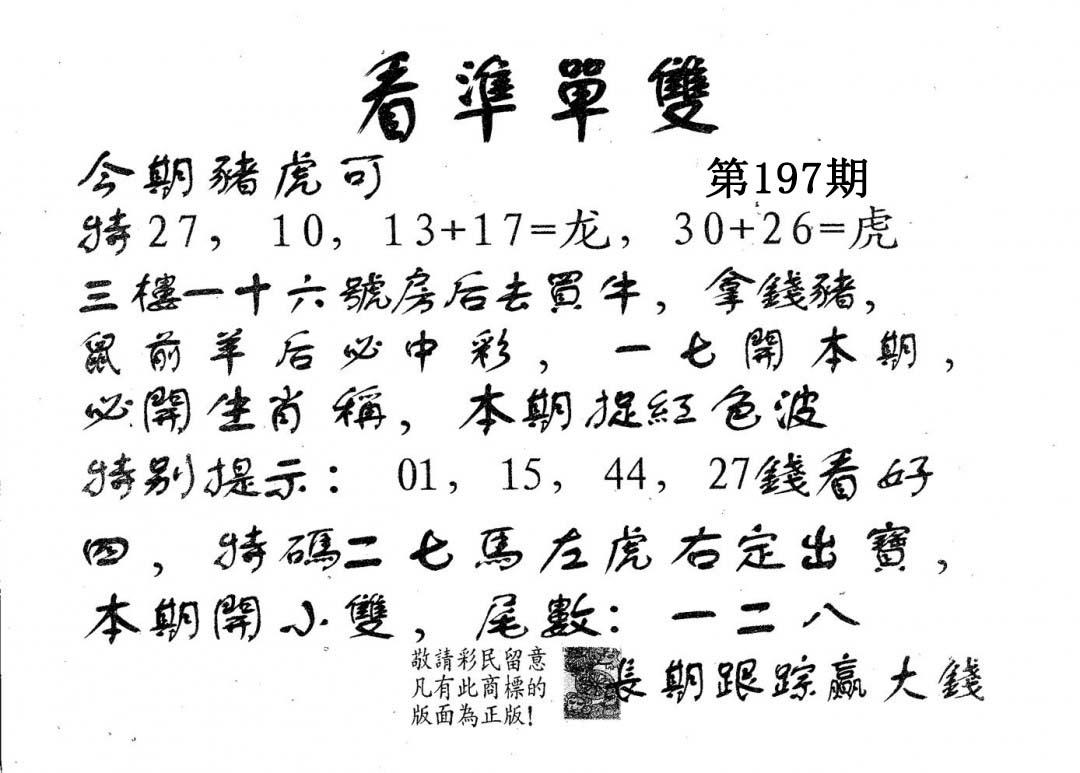 看準單雙
今期豬虎可
第197期
特27，10，13+17=龙，30+26=虎
三樓一十六號房后去買牛，拿錢豬，
鼠前羊后必中彩，一七開本期，
必開生肖稱，本期捉紅色波
特别提示：01，15，44，27錢看好
四，特碼二七馬左虎右定出寶，
本期開小雙，尾數：一二八
敬請彩民留意
凡有此商標的
版面為正版！
長期跟踪赢大錢